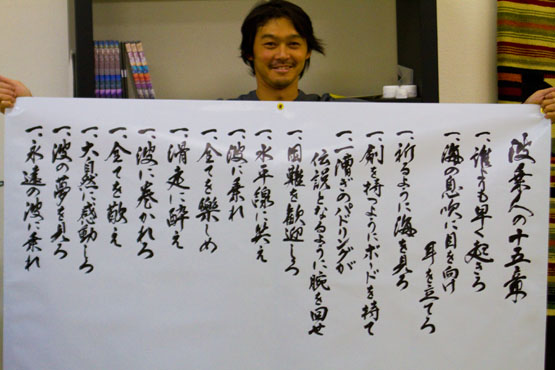 波乗人の十五章
一、誰よりも早く起きろ
一、海の息吹に目を向け
耳を立てろ
一、祈るように海を見ろ
一、剣を持つようにボードを持て
一、一漕ぎのパドリングが
伝説となるように腕を回せ
一、困難を歓迎しろ
一、水平線に笑え
一、波に乗れ
一、全てを楽しめ
一、滑走に酔え
一、波に巻かれろ
一、全てを
一、大自然に感動しろ
一、波の夢を見ろ
一、永遠の波に乗れ